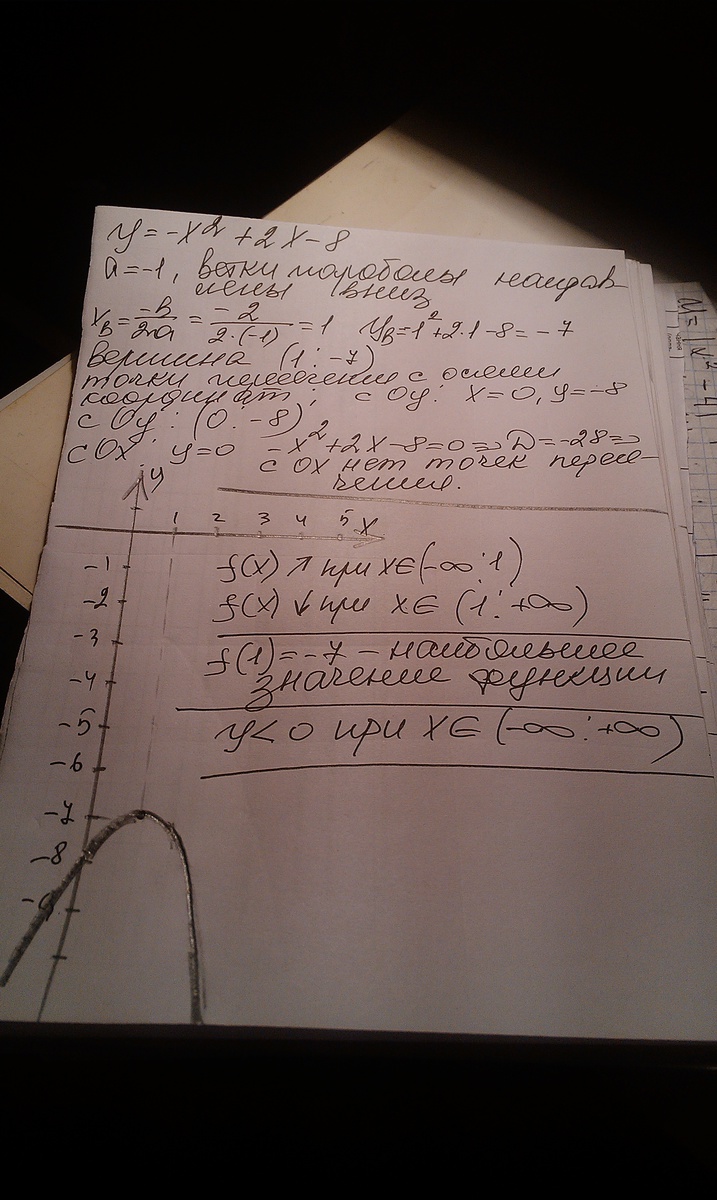 y = -x² + 2x - 8
a = -1, ветки параболы направ
лены вниз
x_B = -b/2a = -2/2·(-1) = 1 y_B = 1² + 2·1 - 8 = -7
вершина (1; -7)
точки пересечения с осями
координат: с Oy: x = 0, y = -8
с Oy: (0; -8)
с Ox y = 0 -x² + 2x - 8 = 0 ⇒ D = -28 ⇒
с Ox нет точек пересе-
чения.
y
1 2 3 4 5 x
-1 f(x) ↗ при x ∈ (-∞; 1)
-2 f(x) ↓ при x ∈ (1; +∞)
-3
f(1) = -7 - наибольшее
-4 значение функции
-5 y < 0 при x ∈ (-∞; +∞)
-6
-7
-8
-9